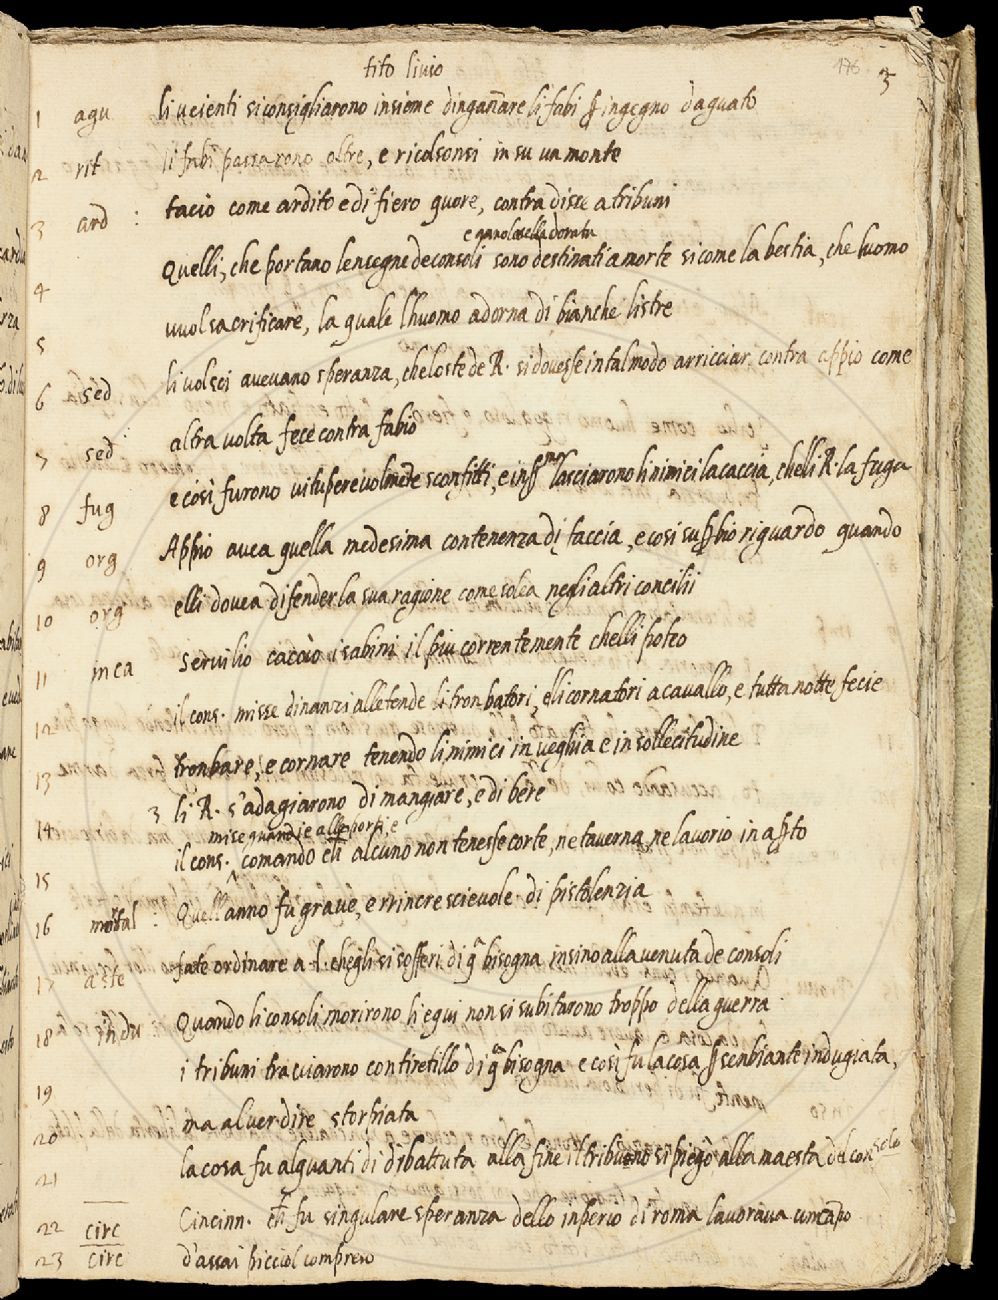 tito livio
176 3
1 agu li veienti si consigliarono insieme dingañare li fabi ꝑ ingegno daguato
2 rit li fabi passarono oltre, e ricolsonsi in su un monte
3 ard : tacio come ardito e di fiero quore, contradisse a tribuni
e ganolasella dorata
4 Quelli, che portano lensegne de consoli sono destinati a morte si come la bestia, che luomo
5 vuol sacrificare, la quale lhuomo adorna di bianche listre
6 sed li volsci avevano speranza, che loste de R. si dovesse in tal modo arricciar contra appio come
7 sed altra volta fece contra fabio
8 fug e così furono vituperevolmẽte sconfitti, e lasciarono li nimici la caccia, che li R. la fuga
9 org Appio avea quella medesima contenenza di faccia, e così suꝑbio riguardo quando
10 org elli dovea difender la sua ragione come solea negli altri concilii
11 inca Servilio cacciò i sabini il piu correntemente chelli poteo
12 il cons. misse dinanzi alle tende li tronbatori, e li cornatori a cavallo, e tutta notte fecie
13 2 tronbare, e cornare tenendo li nimici in veghia e in sollecitudine
14 3 li R. s'adagiarono di mangiare, e di bere
mise guardie alle porti, e
15 il cons. ^ comando cħ alcuno non tenesse corte, ne taverna, ne lavorio in aꝑto
16 mortal : Quell anno fu grave, e rincrescievole di pistolenzia
17 aste fate ordinare a .f. chegli si sofferi di q̃ bisogna insino alla venuta de consoli
18 indu Quando li consoli morirono li equi non si subitarono troppo della guerra
19 i tribuni tracciarono contiretillo di q̃ bisogna e così fu la cosa ꝑ senbiante indugiata,
20 ma al ver dire storpiata
21 la cosa fu alquanti di dibattuta alla fine il tribuono si piegò alla maesta del consolo
22 circ Cincinn. cħ fu singulare speranza dello inperio di roma lavorava un cãpo
23 circ d'assai picciol compreso